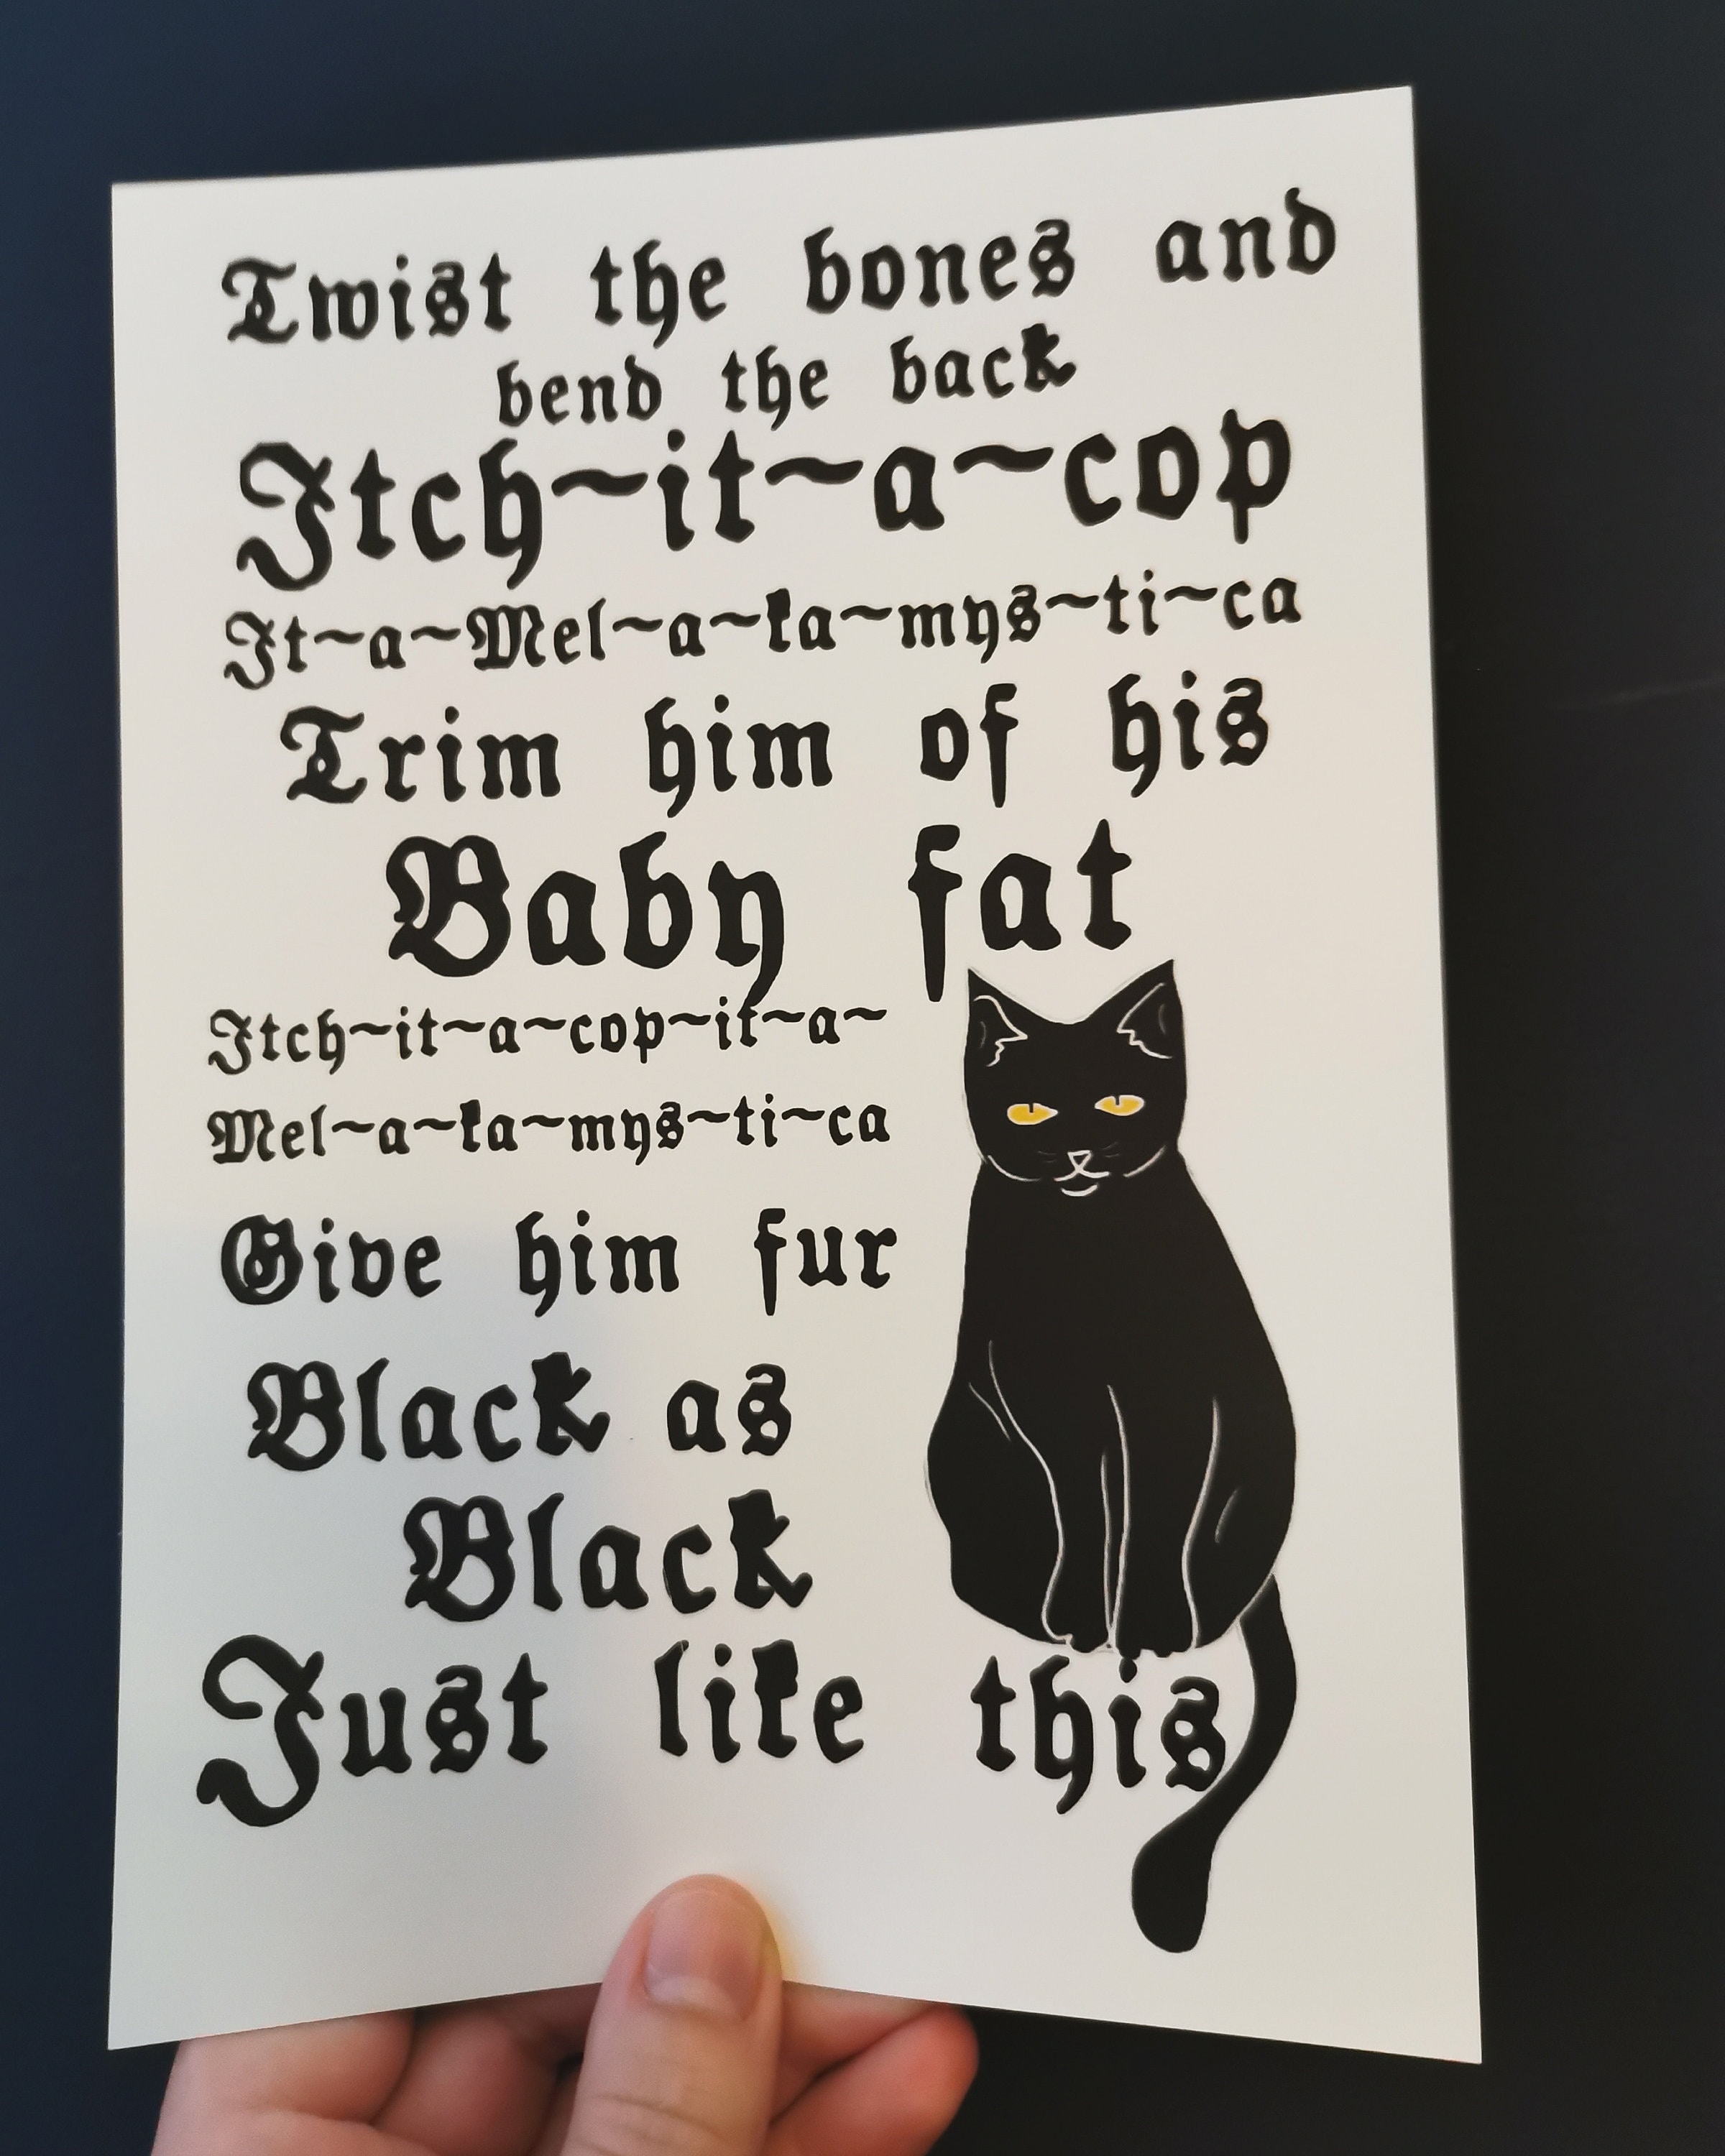 Twist the bones and
bend the back
Itch~it~a~cop
It~a~Mel~a~ka~mys~ti~ca
Trim him of his
Baby fat
Itch~it~a~cop~it~a~
Mel~a~ka~mys~ti~ca
Give him fur
Black as
Black
Just like this